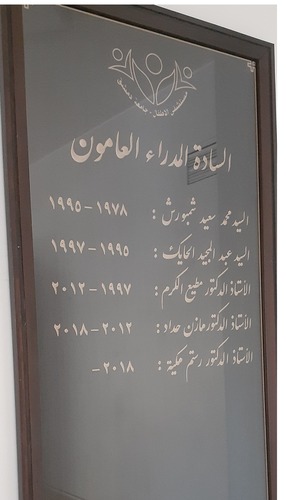 مستشفى الأطفال - جامعة دمشق
السادة المدراء العامون
السيد محمد سعيد شمبورش : ١٩٧٨-١٩٩٥
السيد عبد المجيد الحايك : ١٩٩٥-١٩٩٧
الأستاذ الدكتور مطيع الكرم : ١٩٩٧-٢٠١٢
الأستاذ الدكتور مازن حداد : ٢٠١٢-٢٠١٨
الأستاذ الدكتور رستم مكية : ٢٠١٨-